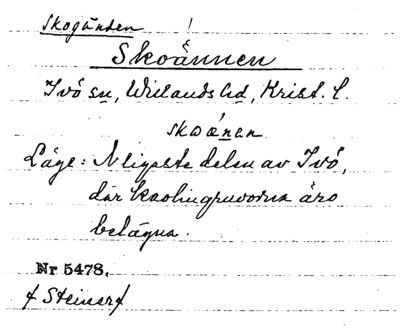 Skogänden !
Skoännen
Ivö sn, Willands hd, Krist. l.
skoánen
Läge: Nligaste delen av Ivö,
där kaolingruvorna äro
belägna.
Nr 5478.
f Steinerf